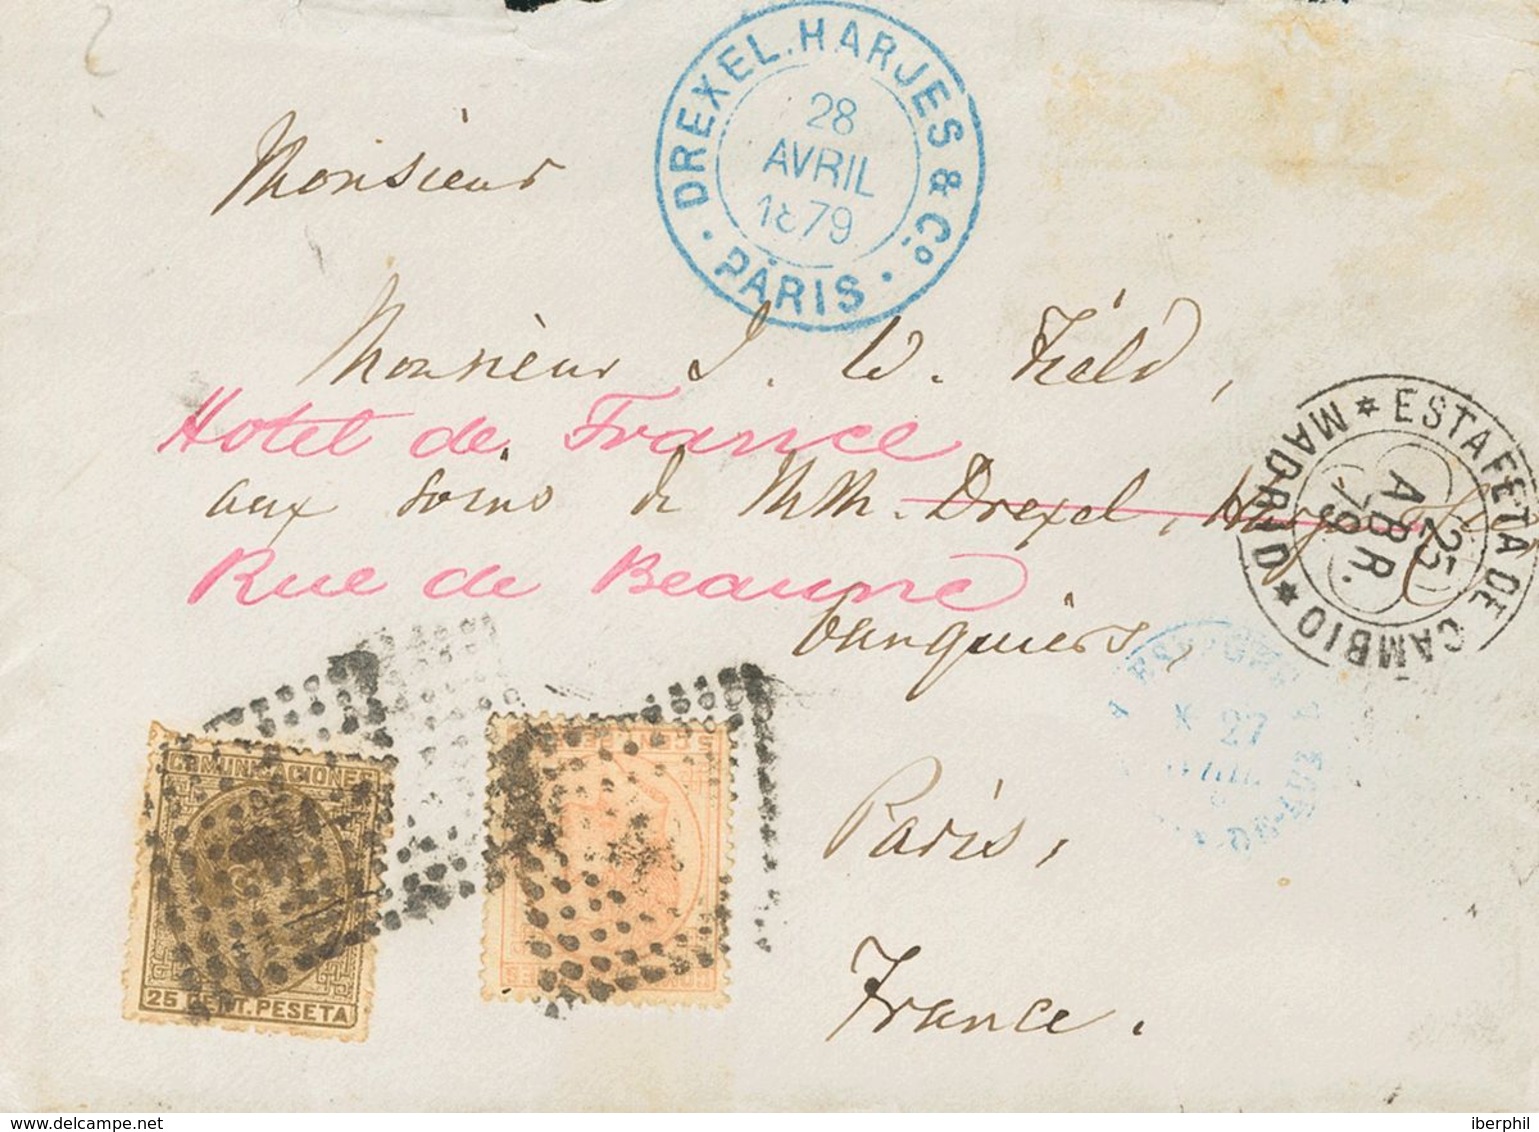 DREXEL, HARJES & Cº.
28
AVRIL
1879
PARIS
Monsieur
Monsieur J. W. Field,
Hotel de France
aux soins de MM. Drexel,
Rue de Beaune
banquiers,
Paris,
France.
ESTAFETA DE CAMBIO
MADRID
25
ABR.
79
27
COMUNICACIONES
25 CENT. PESETA
delcampe.net
iberphil